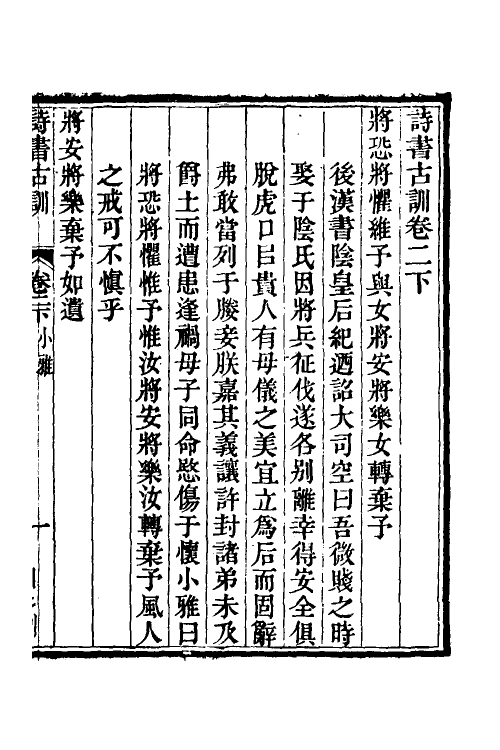 詩書古訓卷二下
將恐將懼維予與女將安將樂女轉棄予
後漢書陰皇后紀迺詔大司空曰吾微賤之時
娶于陰氏因將兵征伐遂各別離幸得安全俱
脫虎口㠯貴人有母儀之美宜立爲后而固辭
弗敢當列于媵妾朕嘉其義讓許封諸弟未及
爵土而遭患逢禍母子同命愍傷于懷小雅曰
將恐將懼惟予惟汝將安將樂汝轉棄予風人
之戒可不慎乎
將安將樂棄予如遺
詩書古訓 卷二下 小雅 一